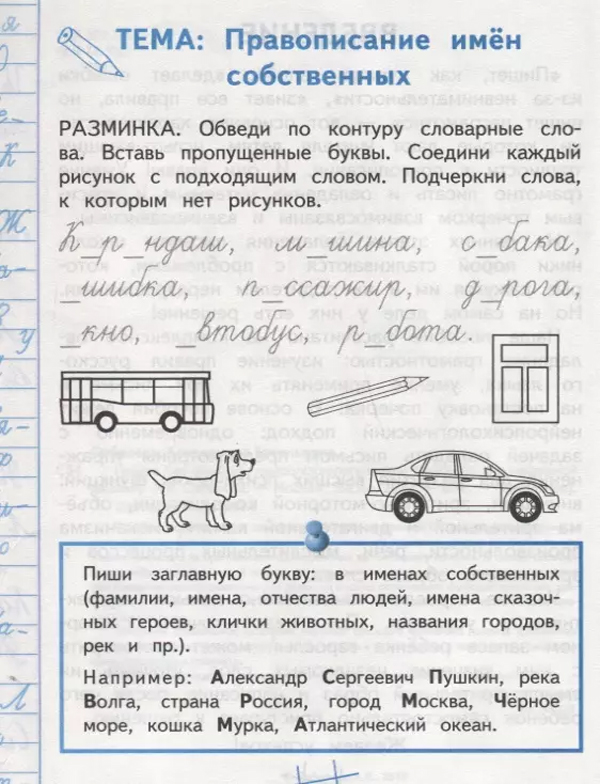 ТЕМА: Правописание имён
собственных
РАЗМИНКА. Обведи по контуру словарные сло-
ва. Вставь пропущенные буквы. Соедини каждый
рисунок с подходящим словом. Подчеркни слова,
к которым нет рисунков.
К_р_ндаш, м_шина, с_бака,
_шибка, п_ссажир, д_рога,
_кно, _втобус, р_бота.
Пиши заглавную букву: в именах собственных
(фамилии, имена, отчества людей, имена сказоч-
ных героев, клички животных, названия городов,
рек и пр.).
Например: Александр Сергеевич Пушкин, река
Волга, страна Россия, город Москва, Чёрное
море, кошка Мурка, Атлантический океан.